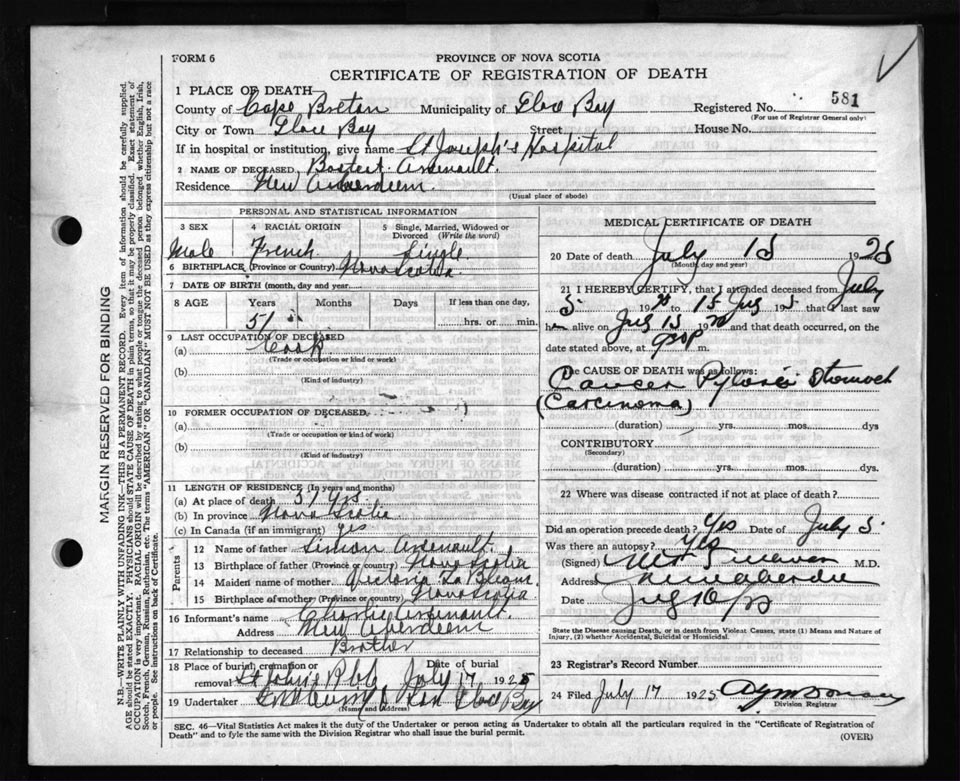 FORM 6
PROVINCE OF NOVA SCOTIA
CERTIFICATE OF REGISTRATION OF DEATH
1 PLACE OF DEATH—
County of Cape Breton Municipality of Glace Bay Registered No. 581
(For use of Registrar General only)
City or Town Glace Bay Street House No.
If in hospital or institution, give name St Joseph's Hospital
2 NAME OF DECEASED Arsenault.
Residence New Aberdeen.
(Usual place of abode)
PERSONAL AND STATISTICAL INFORMATION
3 SEX 4 RACIAL ORIGIN 5 Single, Married, Widowed or Divorced (Write the word)
Male French Single
6 BIRTHPLACE (Province or Country) Nova Scotia
7 DATE OF BIRTH (month, day and year)
8 AGE Years Months Days If less than one day,
51 hrs. or min.
9 LAST OCCUPATION OF DECEASED
(a) Cook
(Trade or occupation or kind or work)
(b)
(Kind of industry)
10 FORMER OCCUPATION OF DECEASED
(a)
(Trade or occupation or kind of work)
(b)
(Kind of Industry)
11 LENGTH OF RESIDENCE (In years and months)
(a) At place of death 51 yrs.
(b) In province Nova Scotia
(c) In Canada (if an immigrant) yes
Parents
12 Name of father Simon Arsenault.
13 Birthplace of father (Province or country) Nova Scotia
14 Maiden name of mother Victoria
15 Birthplace of mother (Province or country) Nova Scotia
16 Informant's name Charlie Arsenault.
Address New Aberdeen
17 Relationship to deceased Brother
18 Place of burial, cremation or removal St Johns Date of burial July 17 1925
19 Undertaker & Son Glace Bay
(Name and address)
MEDICAL CERTIFICATE OF DEATH
20 Date of death July 15 1925
(Month, day and year)
21 I HEREBY CERTIFY, that I attended deceased from July
5 19 25 to 15 July 192 5 that I last saw
him alive on July 15 19 25 and that death occurred, on the
date stated above, at 930P m.
The CAUSE OF DEATH was as follows:
Cancer Stomach
(Carcinoma)
(duration) yrs. mos. dys
CONTRIBUTORY
(Secondary)
(duration) yrs. mos. dys.
22 Where was disease contracted if not at place of death?
Did an operation precede death? Yes Date of July 5
Was there an autopsy? Yes
(Signed) M.D.
Address
Date July 16/25
State the Disease causing Death, or in death from Violent Causes, state (1) Means and Nature of Injury, (2) whether Accidental, Suicidal or Homicidal.
23 Registrar's Record Number
24 Filed July 17 1925
Division Registrar
SEC. 46—Vital Statistics Act makes it the duty of the Undertaker or person acting as Undertaker to obtain all the particulars required in the "Certificate of Registration of
Death" and to fyle the same with the Division Registrar who shall issue the burial permit. (OVER)
MARGIN RESERVED FOR BINDING
N.B.—WRITE PLAINLY WITH UNFADING INK—THIS IS A PERMANENT RECORD. Every item of information should be carefully supplied.
AGE should be stated EXACTLY. PHYSICIANS should STATE CAUSE OF DEATH in plain terms, so that it may be properly classified. Exact statement of
OCCUPATION is very important. RACIAL ORIGIN will be described by stating to what people or tongue the deceased person belonged, whether English, Irish,
Scotch, French, German, Russian, Ruthenian, etc. The terms "AMERICAN" OR "CANADIAN" MUST NOT BE USED as they express citizenship but not a race
or people. See instructions on back of Certificate.